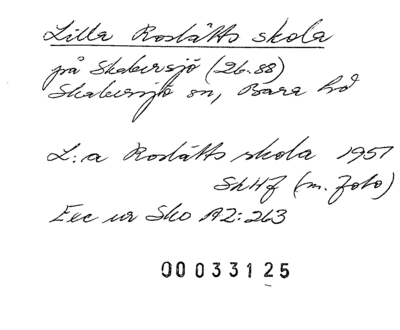 Lilla Roslätts skola
på Skabersjö (26.88)
Skabersjö sn, Bara hd
L:a Roslätts skola 1951
SkHf (m. foto)
Exc ur Sko A2:263
00033125